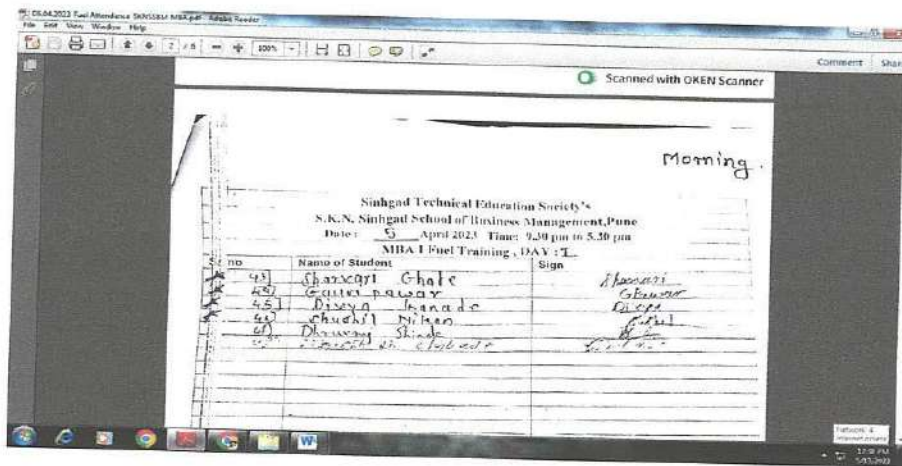 05.04.2023 Fuel Attendance SKNSSBM MBA.pdf - Adobe Reader
File Edit View Window Help
2 / 8 100% Comment Share
Scanned with OKEN Scanner
Morning.
Sinhgad Technical Education Society's
S.K.N. Sinhgad School of Business Management,Pune
Date : 5 April 2023 Time: 9.30 pm to 5.30 pm
MBA I Fuel Training , DAY : I
no Name of Student Sign
43] Sharvari Ghate Sharvari
44] Gauri pawar GPawar
45] Divya Kanade Divya
46] Chushil Nikam
Dhruvang Shinde
12:38 PM
5/13/2023